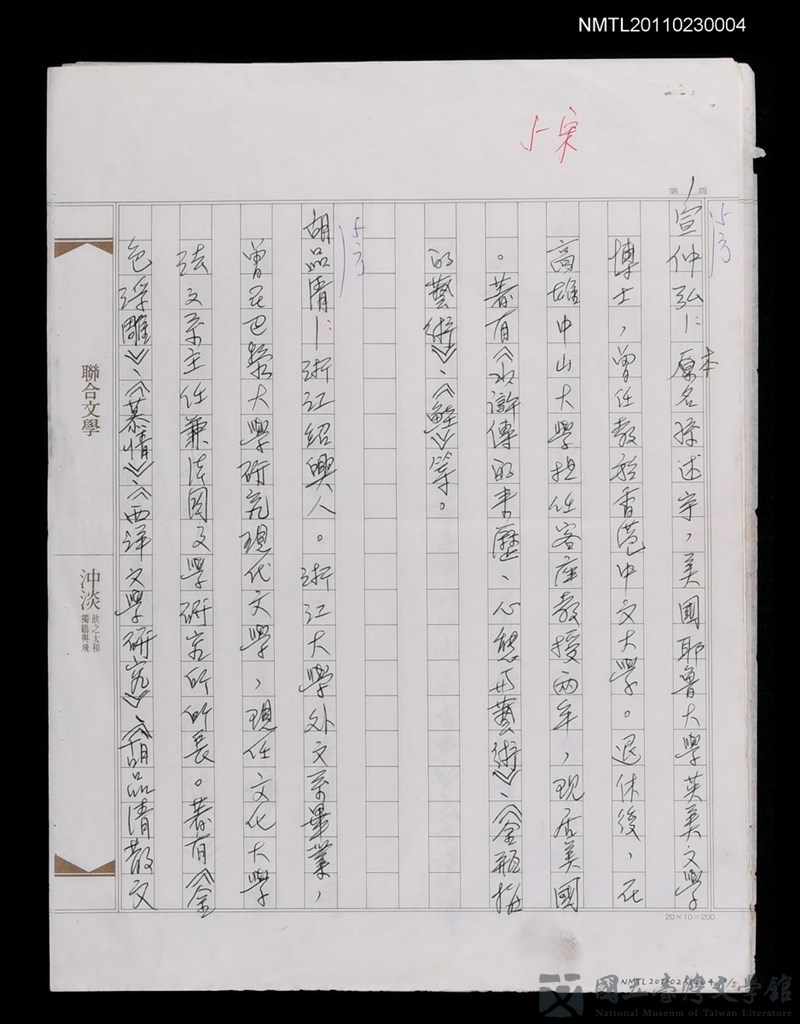 NMTL20110230004
小宋
第1頁
小方
宣仲弘—:本原名孫述宇,美國耶魯大學英美文學
博士,曾任教於香港中文大學。退休後,在
高雄中山大學担任客座教授兩年,現居美國
。著有《水滸傳的來歷、心態與藝術》、《金瓶梅
的藝術》、《鮭》等。
小方
胡品清—:浙江紹興人。浙江大學外文系畢業,
曾在巴黎大學研究現代文學,現任文化大學
法文系主任兼法國文學研究所所長。著有《金
色浮雕》、《慕情》、《西洋文學研究》、《胡品清散文
聯合文學
沖淡
飲之太和
獨鶴與飛
20×10=200
國立臺灣文學館
National Museum of Taiwan Literature